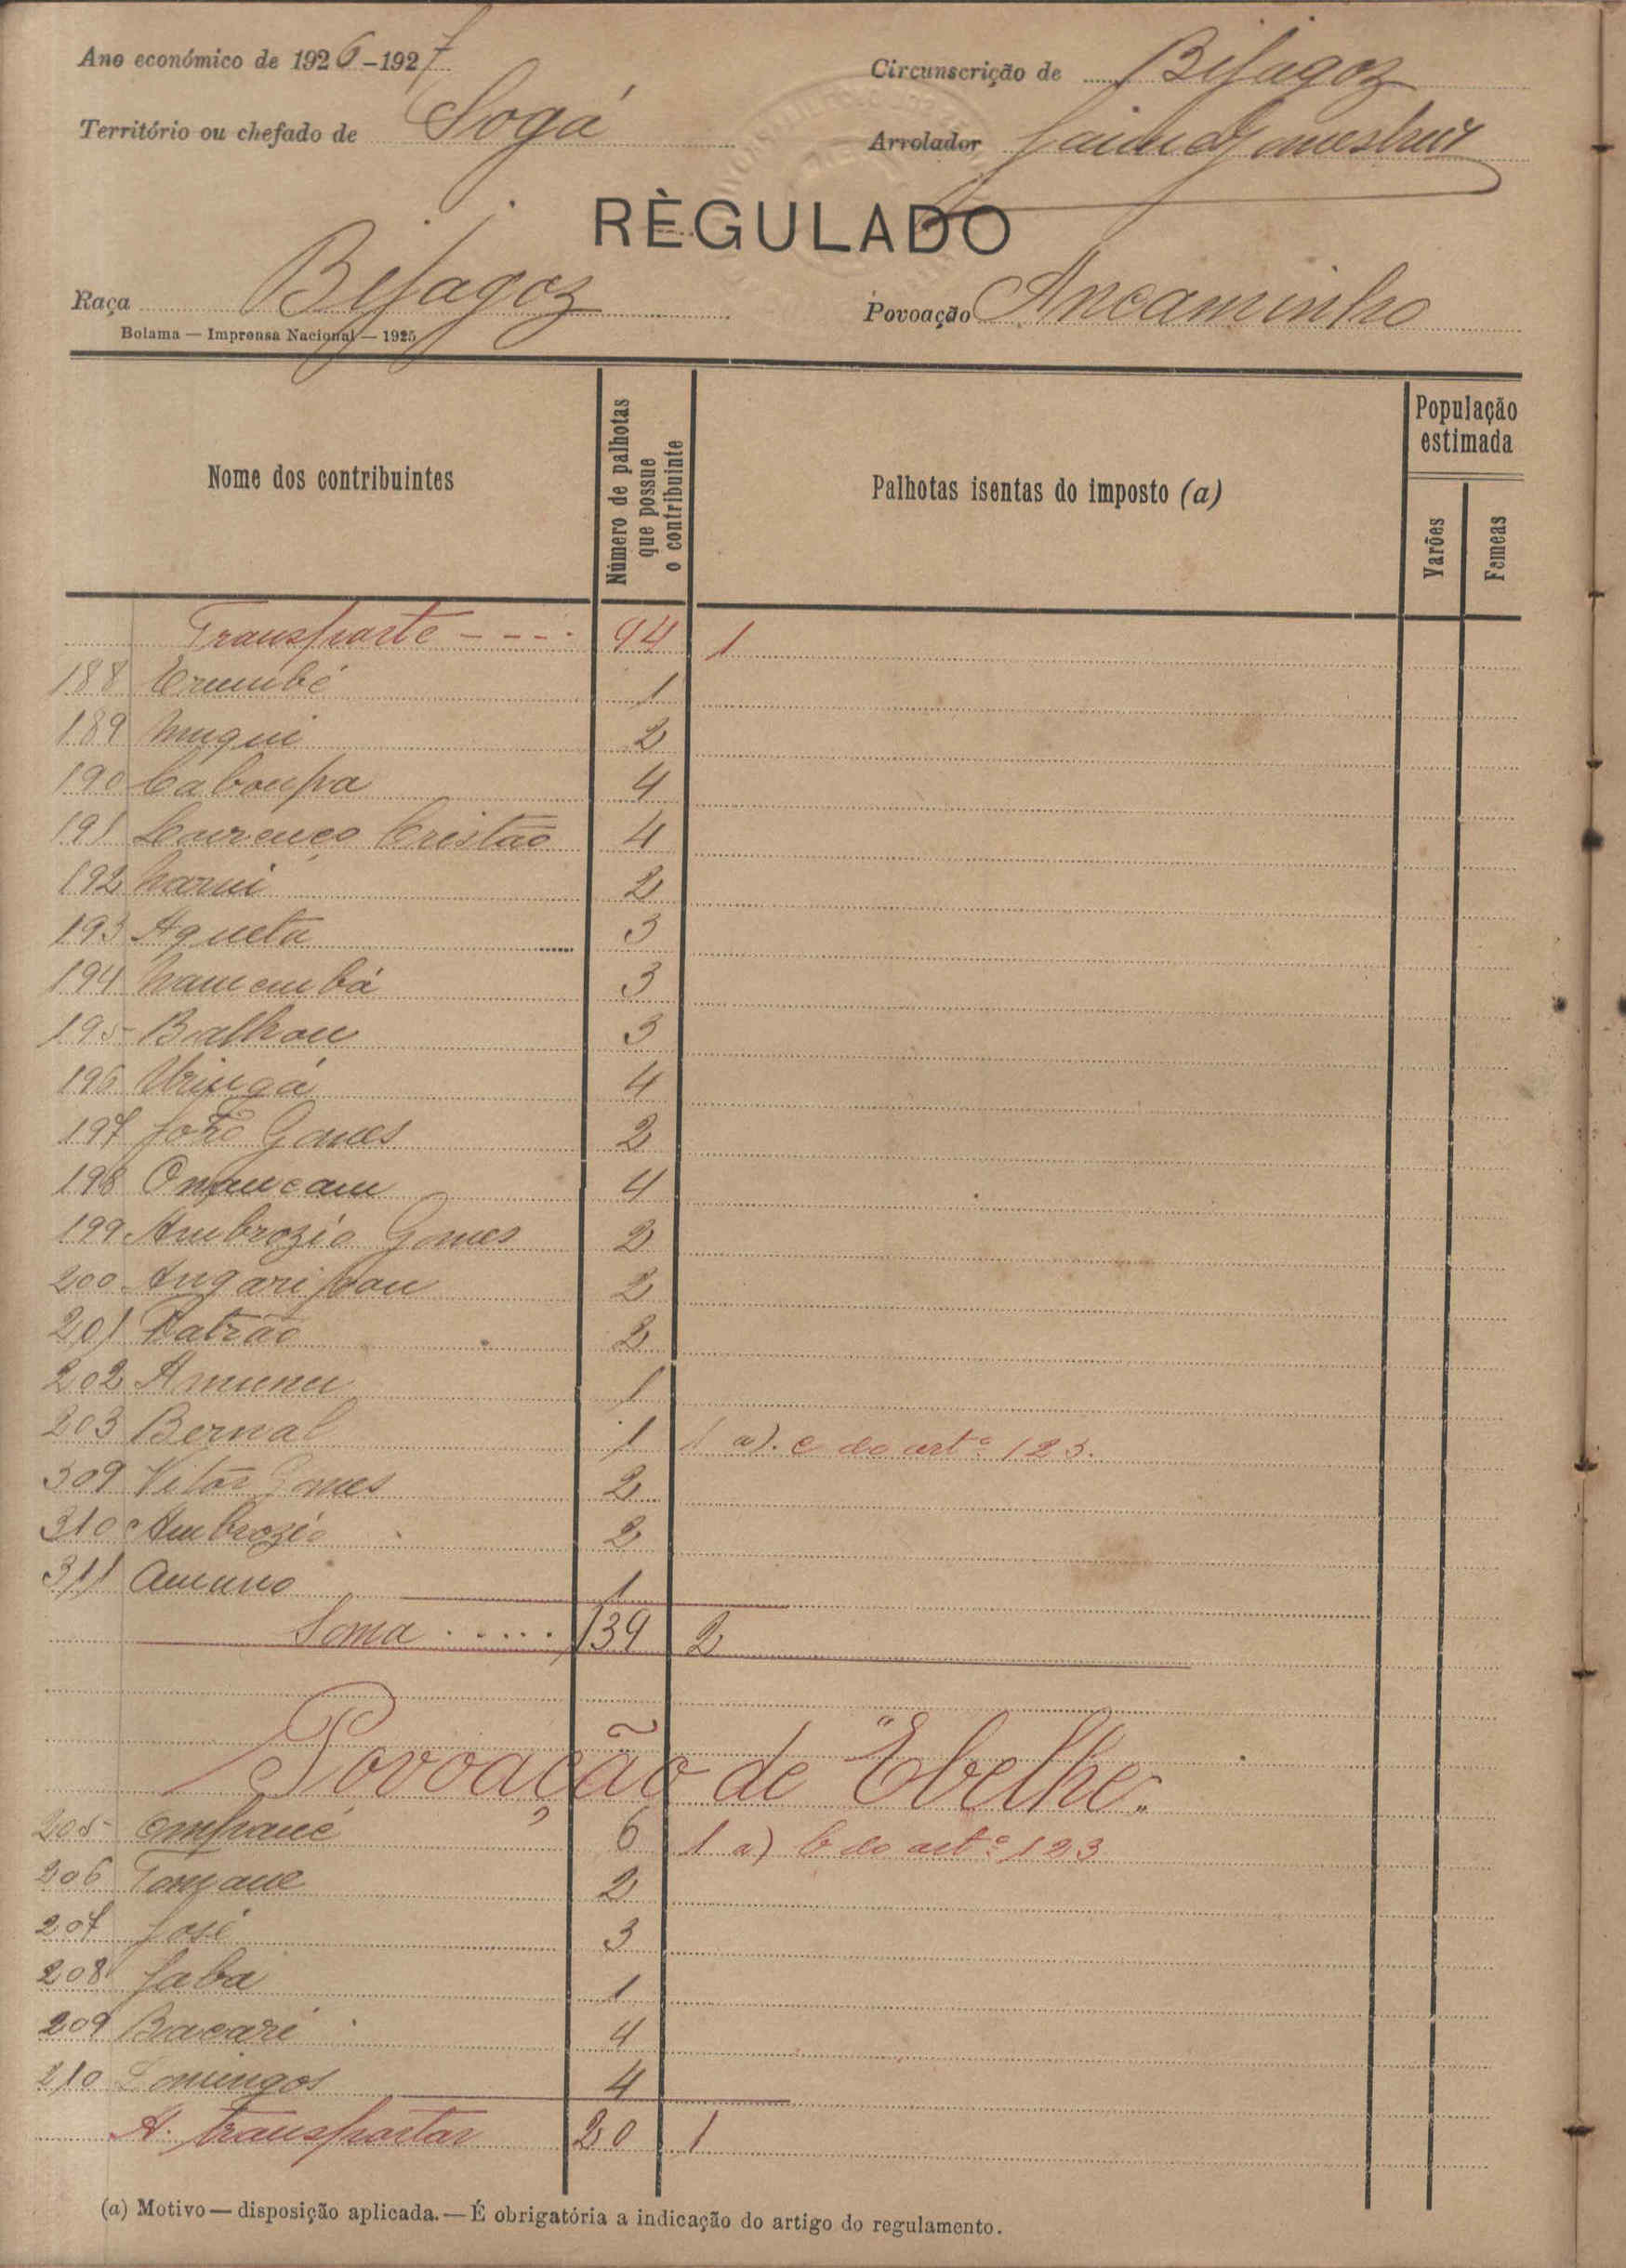 Ano económico de 1926-1927 Circunscrição de Bijagoz
Território ou chefado de Sogá Arrolador Jaime Gomes
RÈGULADO
Raça Bijagoz Povoação Ancaminho
Bolama — Imprensa Nacional — 1925
Nome dos contribuintes
Número de palhotas que possue o contribuinte
Palhotas isentas do imposto (a)
População estimada
Varões
Femeas
Transporte - - - - 94 1
188 Crumbé 1
189 Muqui 2
190 Caboupa 4
191 Lourenço Cristão 4
192 Narni 2
193 Aqueta 3
194 Namembá 3
195 Balhou 3
196 Uringá 4
197 João Gomes 2
198 4
199 Ambrozio Gomes 2
200 Angaripau 2
201 Patrão 2
202 Amunu 1
203 Bernal 1 1 a). c do artº 123.
309 Vitor Gomes 2
310 Ambrozio 2
311 Amuno 1
Soma . . . . . 139 2
Povoação de "Ebelhe"
205 Empané 6 1 a) b do artº 123
206 Tomane 2
207 José 3
208 Jaba 1
209 Bacari 4
210 Domingos 4
A transportar 20 1
(a) Motivo — disposição aplicada. — É obrigatória a indicação do artigo do regulamento.